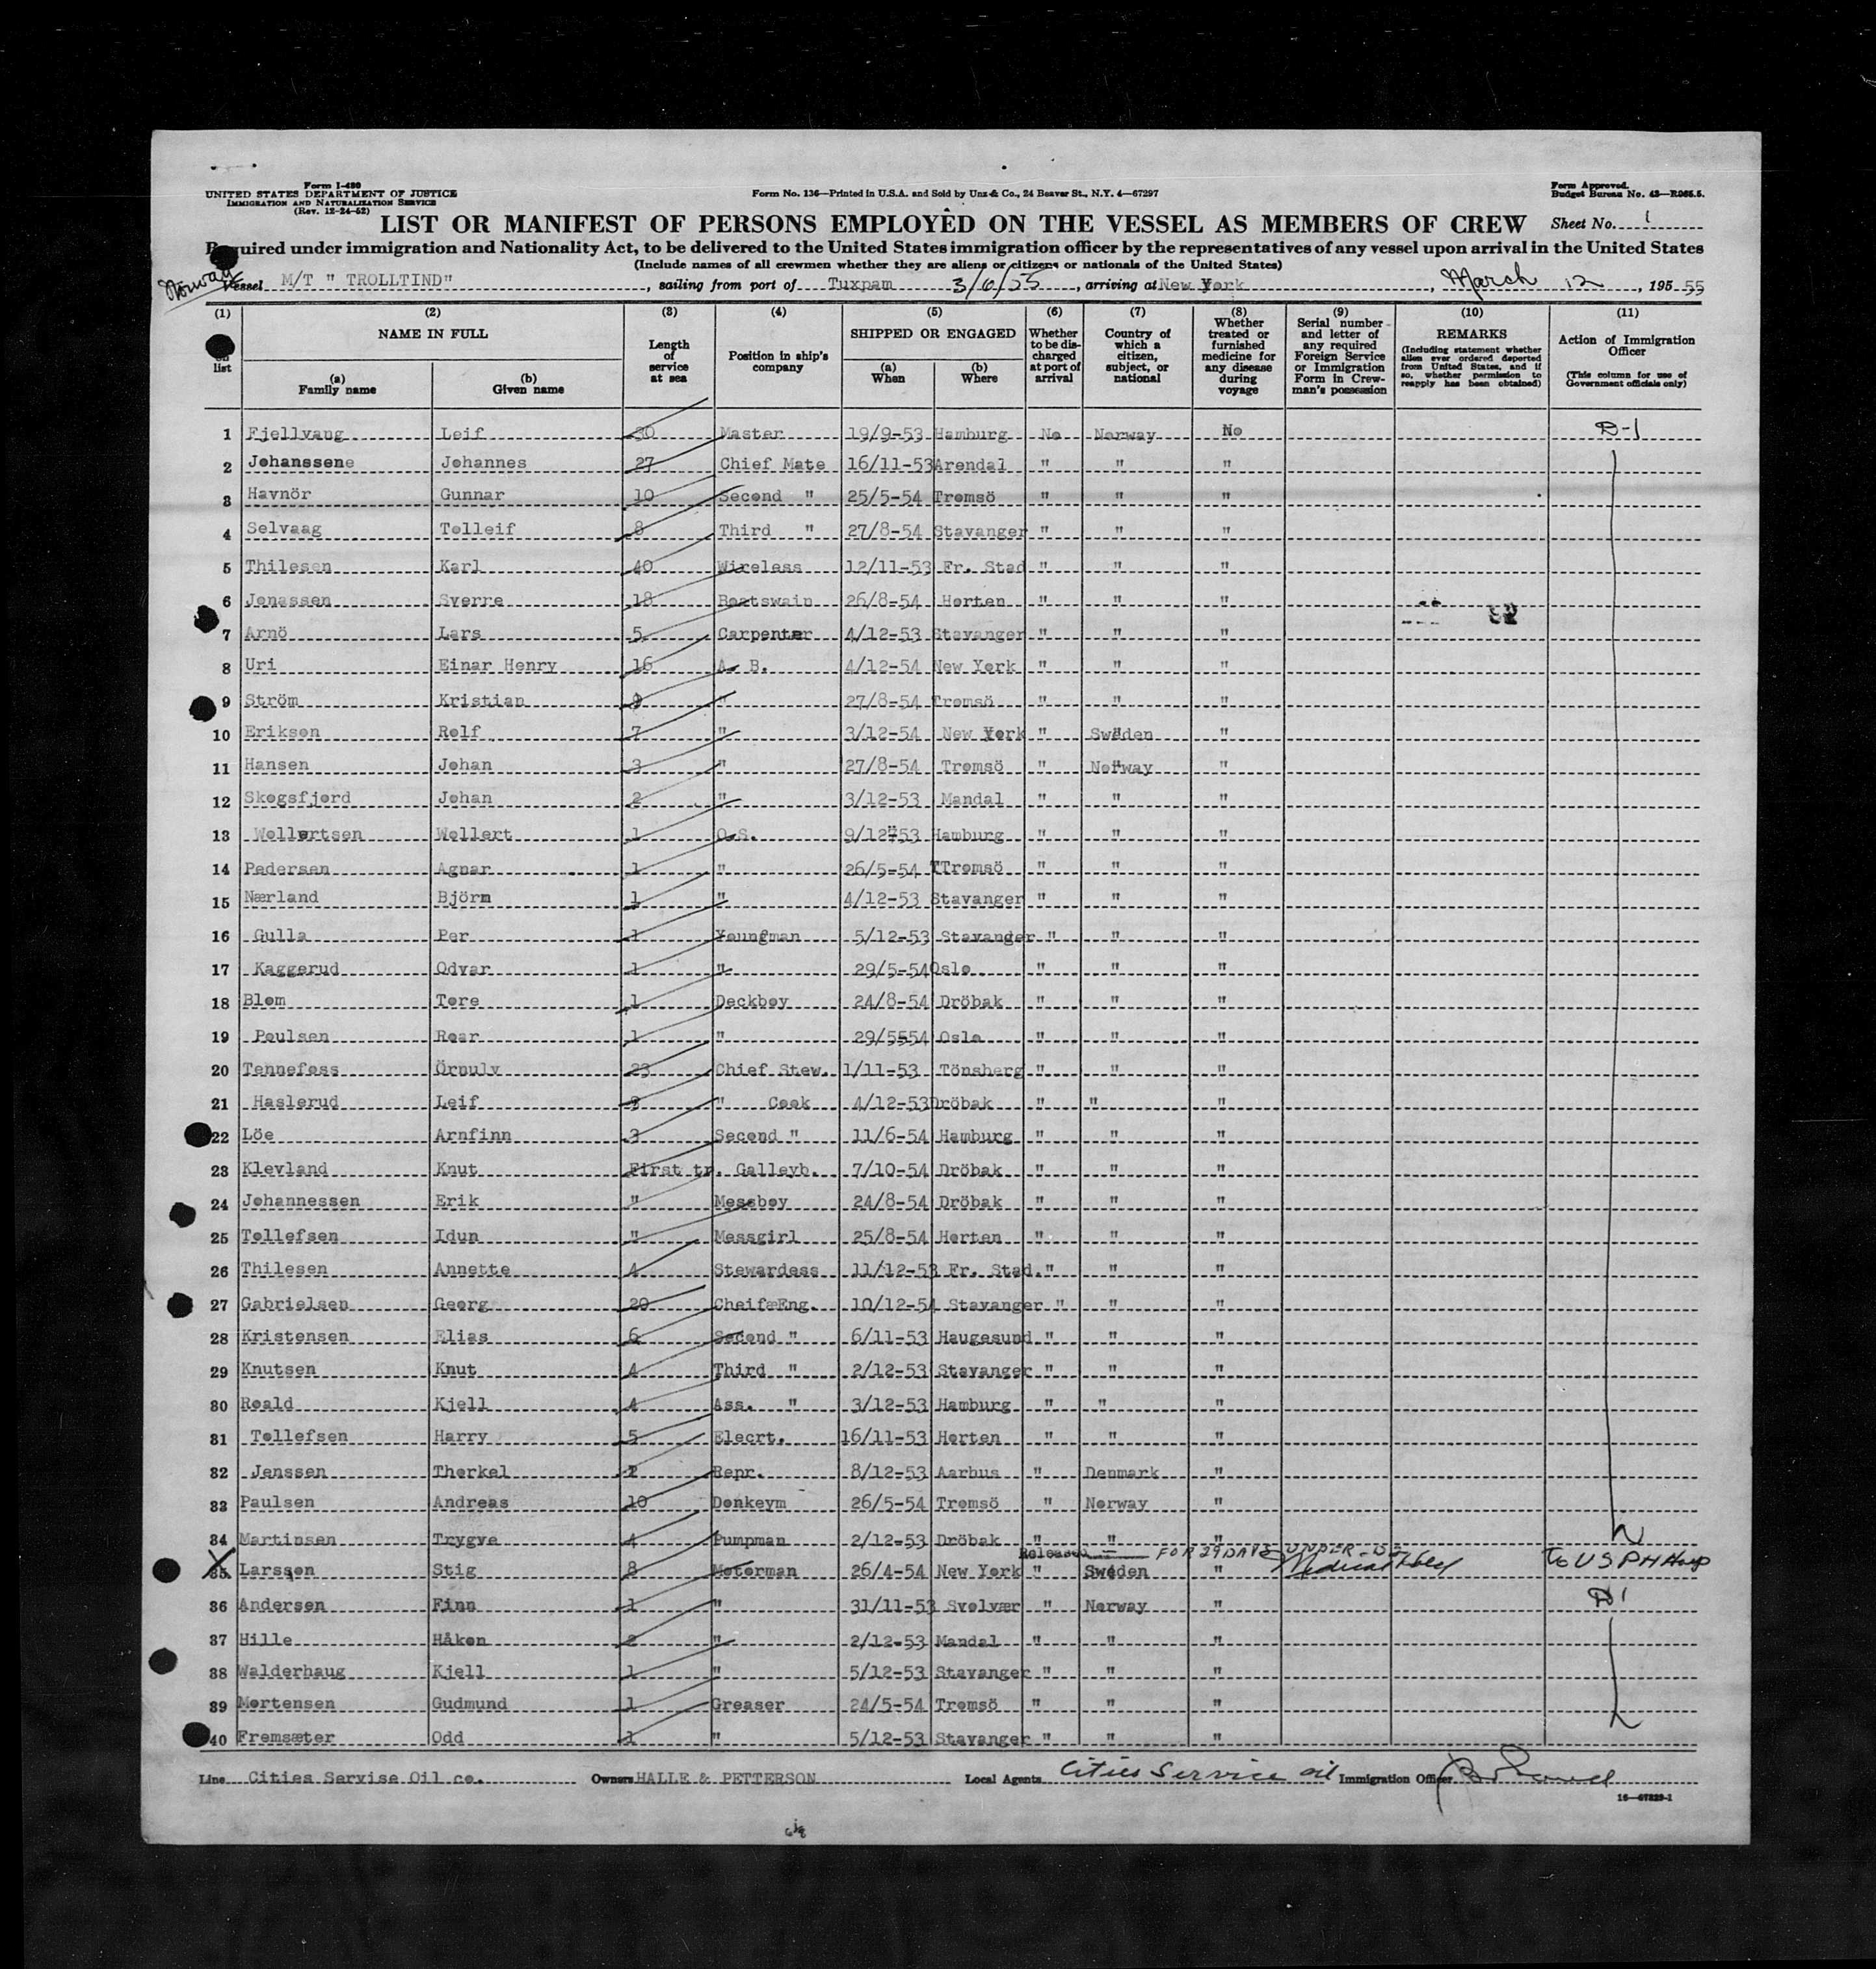 Form I-480
UNITED STATES DEPARTMENT OF JUSTICE
IMMIGRATION AND NATURALIZATION SERVICE
(Rev. 12-24-52)
Form No. 136—Printed in U.S.A. and Sold by Unz & Co., 24 Beaver St., N.Y. 4—67297
Form Approved.
Budget Bureau No. 43—R065.5.
LIST OR MANIFEST OF PERSONS EMPLOYED ON THE VESSEL AS MEMBERS OF CREW
Sheet No. 1
Required under immigration and Nationality Act, to be delivered to the United States immigration officer by the representatives of any vessel upon arrival in the United States
(Include names of all crewmen whether they are aliens or citizens or nationals of the United States)
Norway
Vessel M/T " TROLLTIND" , sailing from port of Tuxpam 3/6/55 , arriving at New York , March 12 , 195 55
(1) (2) (3) (4) (5) (6) (7) (8) (9) (10) (11)
on list
NAME IN FULL
(a) Family name
(b) Given name
Length of service at sea
Position in ship's company
SHIPPED OR ENGAGED
(a) When
(b) Where
Whether to be discharged at port of arrival
Country of which a citizen, subject, or national
Whether treated or furnished medicine for any disease during voyage
Serial number and letter of any required Foreign Service or Immigration Form in Crewman's possession
REMARKS
(Including statement whether alien ever ordered deported from United States, and if so, whether permission to reapply has been obtained)
Action of Immigration Officer
(This column for use of Government officials only)
1 Fjellvang Leif 30 Master 19/9-53 Hamburg No Norway No D-1
2 Johanssene Johannes 27 Chief Mate 16/11-53 Arendal " " "
3 Havnör Gunnar 10 Second " 25/5-54 Tromsö " " "
4 Selvaag Tolleif 8 Third " 27/8-54 Stavanger " " "
5 Thilesen Karl 40 Wireless 12/11-53 Fr. Stad " " "
6 Jonassen Sverre 18 Boatswain 26/8-54 Horten " " "
7 Arnö Lars 5 Carpenter 4/12-53 Stavanger " " "
8 Uri Einar Henry 16 A. B. 4/12-54 New York " " "
9 Ström Kristian " 27/8-54 Tromsö " " "
10 Erikson Rolf 7 " 3/12-54 New York " Sweden "
11 Hansen Johan 3 " 27/8-54 Tromsö " Norway "
12 Skogsfjord Johan 2 " 3/12-53 Mandal " " "
13 Wollertsen Wollert 1 O.S. 9/12-53 Hamburg " " "
14 Pedersen Agnar 1 " 26/5-54 TTromsö " " "
15 Nærland Björn 1 " 4/12-53 Stavanger " " "
16 Gulla Per 1 Youngman 5/12-53 Stavanger " " "
17 Kaggerud Odvar 1 " 29/5-54 Oslo " " "
18 Blom Tore 1 Deckboy 24/8-54 Dröbak " " "
19 Poulsen Roar 1 " 29/5554 Oslo " " "
20 Tennefoss Örnulv 23 Chief Stew. 1/11-53 Tönsberg " " "
21 Haslerud Leif " Cook 4/12-53 Dröbak " " "
22 Löe Arnfinn 3 Second " 11/6-54 Hamburg " " "
23 Klevland Knut First tr. Galleyb. 7/10-54 Dröbak " " "
24 Johannessen Erik " Messboy 24/8-54 Dröbak " " "
25 Tollefsen Idun " Messgirl 25/8-54 Horten " " "
26 Thilesen Annette 4 Stewardess 11/12-53 Fr. Stad. " " "
27 Gabrielsen Georg 20 CheifæEng. 10/12-54 Stavanger " " "
28 Kristensen Elias 6 Second " 6/11-53 Haugesund " " "
29 Knutsen Knut 4 Third " 2/12-53 Stavanger " " "
30 Roald Kjell 4 Ass. " 3/12-53 Hamburg " " "
31 Tollefsen Harry 5 Elecrt. 16/11-53 Horten " " "
32 Jenssen Thorkel Repr. 8/12-53 Aarhus " Denmark "
33 Paulsen Andreas 10 Donkeym 26/5-54 Tromsö " Norway "
34 Martinsen Trygve 4 Pumpman 2/12-53 Dröbak " " "
Released FOR 29 DAYS UNDER
35 Larsson Stig 8 Motorman 26/4-54 New York " Sweden " Medical To USPH Hosp
36 Andersen Finn 1 " 31/11-53 Svolvær " Norway " D1
37 Hille Håkon 2 " 2/12-53 Mandal " " "
38 Walderhaug Kjell 1 " 5/12-53 Stavanger " " "
39 Mortensen Gudmund 1 Greaser 24/5-54 Tromsö " " "
40 Fremsæter Odd 1 " 5/12-53 Stavanger " " "
Line Cities Servise Oil co. Owners HALLE & PETTERSON Local Agents Cities Service oil Immigration Officer
16—67829-1